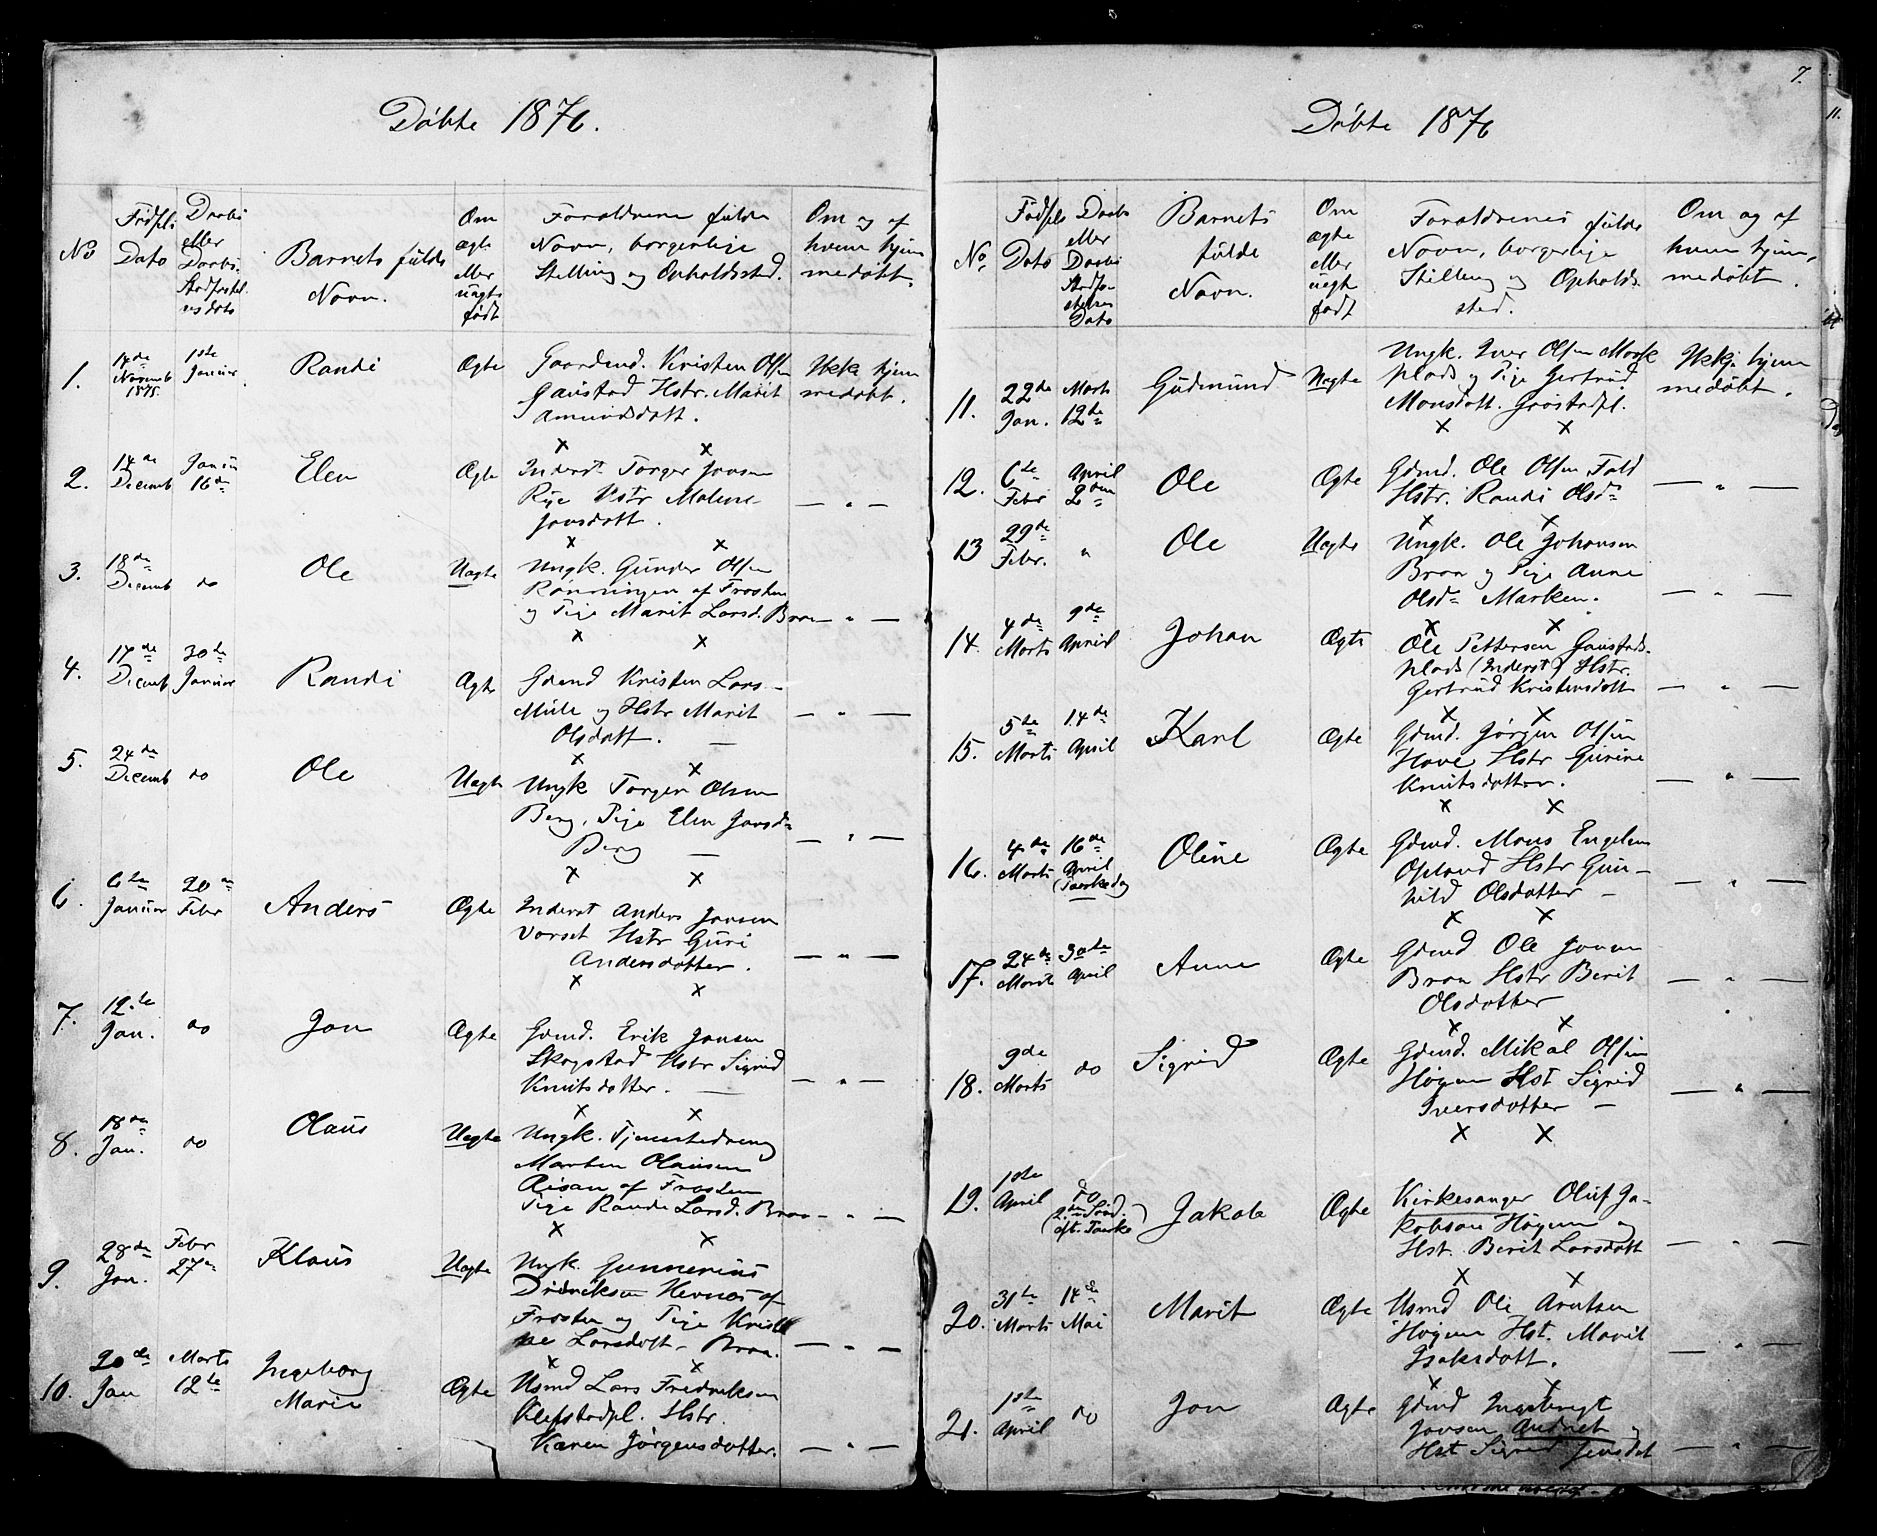 Döbte 1876.
No
Födsels Dato
Daabs eller Daabs. Stadfæstelses dato
Barnets fulde Navn.
Om ægte eller uægte födt
Forældrene fulde Navn, borgerlige Stilling og Opholdssted.
Om og af hvem hjemmedöbt.
1. 14de Novemb 1875. 1ste Januar. Randi Ægte Gaardmd. Kristen Olsen
Gaustad Hstr. Marit
Amundsdatt.
Ikke hjemmedöbt.
2. 14de Decemb Januar 16de Elen Ægte Inderst Torger Jonsen
Rye Hstr Malene
Jonsdatt. — " —
3. 18de Decemb do Ole Uægte Ungk. Gunder Olsen
Rönningen af Frosten
og Pige Marit Larsd. Braa — " —
4. 17de Decemb 30te Januar Randi Ægte Gdmd Kristen Lars-
Mule og Hstr Marit
Olsdatt. — — " —
5. 24de Decemb do Ole Uægte Ungk Torger Olsen
Berg, Pige Elen Jonsd
Berg — — " —
6. 6te Januar 20de Febr Anders Ægte Inderst Anders Jonsen
Vorset Hstr Guri
Andersdatter. — " —
7. 12te Jan. do Jon Ægte Gdmd. Erik Jonsen
Skogstad Hstr Sigrid
Knutsdatter. — — " —
8. 18de Jan. do Olaus Uægte Ungk. Tjenestedreng
Morten Olausen
Aisan af Frosten
Pige Randi Larsd. Braa — " —
9. 28de Jan. Febr 27de Klaus Uægte Ungk. Gunnerius
Didriksen Hernæs af
Frosten og Pige Kristi
ne Larsdatt. Braa. — " —
10. 20de Jan Marts 12te Ingeborg
Marie Ægte Husmd Lars Fredriksen
Klefstadpl. Hstr.
Karen Jörgensdatter. — " —
7.
11.
Döbte 1876
No
Födsels Dato
Daabs eller Daabs Stadfæstelses Dato
Barnets fulde Navn.
Om ægte eller uægte födt
Forældrenes fulde Navn, borgerlige Stilling og Opholdssted.
Om og af hvem hjemmedöbt.
11. 22de Jan. Marts 12te Gudmund Uægte Ungk. Iver Olsen
plads og Pige Gertrud
Monsdatt.
Ikke hjemmedöbt.
12. 6te Febr April 2den Ole Ægte Gdmd. Ole Olsen Fald
Hstr. Randi Olsd — " —
13 29de Febr. " Ole Uægte Ungk. Ole Johansen
Braa og Pige Anne
Olsd Marken. — " —
14. 4de Marts 9de April Johan Ægte Ole Pettersen Gaustads-
plads (Inderst) Hstr.
Gertrud Kristensdatt — " —
15. 5te Marts 14de April Karl Ægte Gdmd. Jörgen Olsen
Hove Hstr Gurine
Knutsdatter. — " —
16. 4de Marts 16de April
(Paaskedag Oline Ægte Gdmd. Mons Engelsen
Opland Hstr Gun-
hild Olsdatter — — " —
17. 24de Marts 30te April Anne Ægte Gdmd Ole Jonsen
Braa Hstr Berit
Olsdatter — " —
18. 9de Marts do Sigrid Ægte Gdmd. Mikal Olsen
Högem Hst Sigrid
Iversdatter — — " —
19. 1ste April do
(2den Sönd.
eft. Paaske) Jakob Ægte Kirkesanger Oluf Ja-
kobsen Högem og
Hst. Berit Larsdatt — " —
20. 31te Marts 14de Mai Marit Ægte Husmd Ole Arntsen
Högem Hst. Marit
Isaksdatt. — " —
21. 1ste April do Jon Ægte Gdmd Ingebrigt
Jonsen Audnet og
Hst Sigrid Jensdat — " —